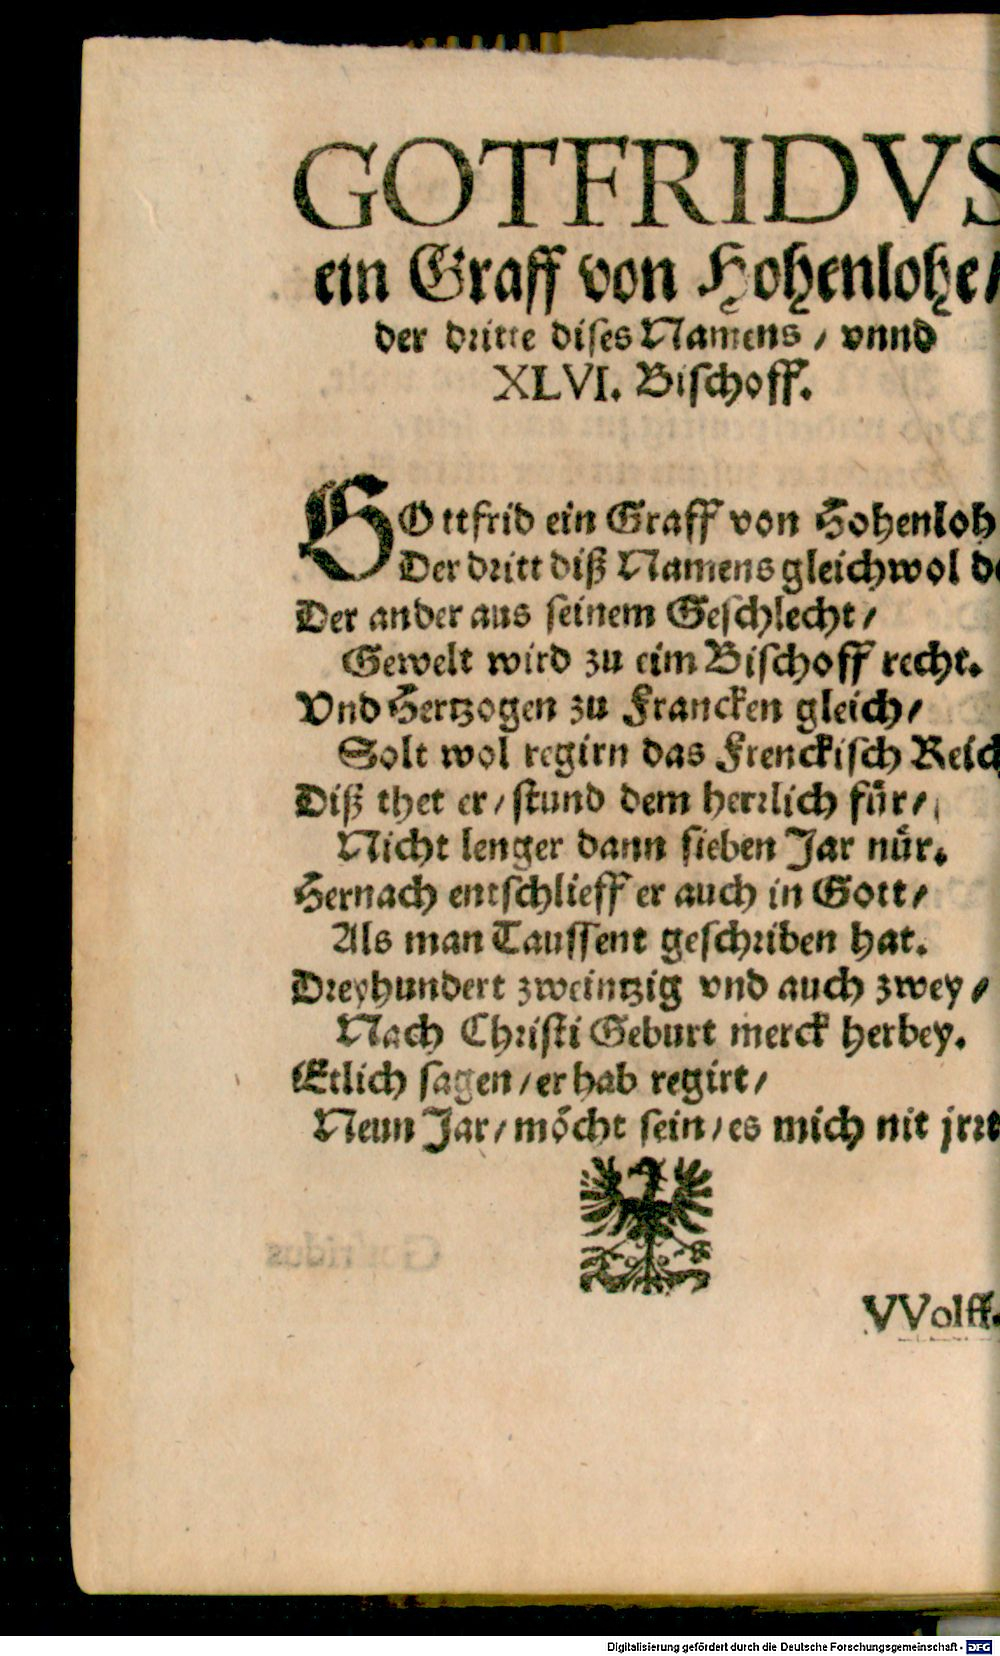 GOTFRIDVS
ein Graff von Hohenlohe/
der dritte dises Namens / vnnd
XLVI. Bischoff.
GOttfrid ein Graff von Hohenloh
Der dritt diß Namens gleichwol
Der ander aus seinem Geschlecht/
Gewelt wird zu eim Bischoff recht.
Vnd Hertzogen zu Francken gleich/
Solt wol regirn das Frenckisch Reich
Diß thet er/ stund dem herrlich für/
Nicht lenger dann sieben Jar nür.
Hernach entschlieff er auch in Gott/
Als man Taussent geschriben hat.
Dreyhundert zweintzig vnd auch zwey/
Nach Christi Geburt merck herbey.
Etlich sagen/ er hab regirt/
Neun Jar/ möcht sein/ es mich nit jrrt
VVolff.
Digitalisierung gefördert durch die Deutsche Forschungsgemeinschaft - DFG